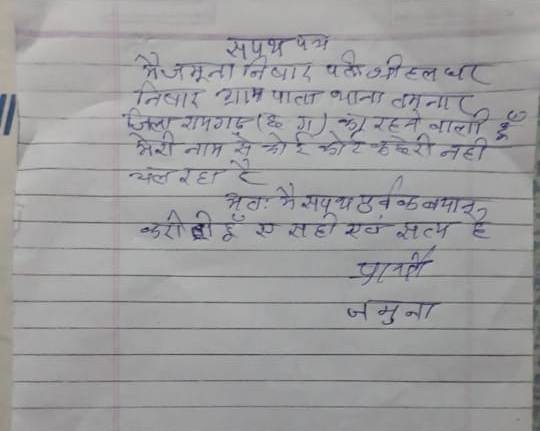 सपथ पत्र
मै जमूना निषार पति श्री हलधर
निषार ग्राम पाता थाना तमनार
जिला रायगढ़ (छ ग) का रहने वाली हूँ
मेरी नाम से कोई कोर्ट कचेरी नही
चल रहा है
अतः मै सपथ पूर्वक बयान
करती हूँ ए सही एवं सत्य है
प्रार्थी
जमुना